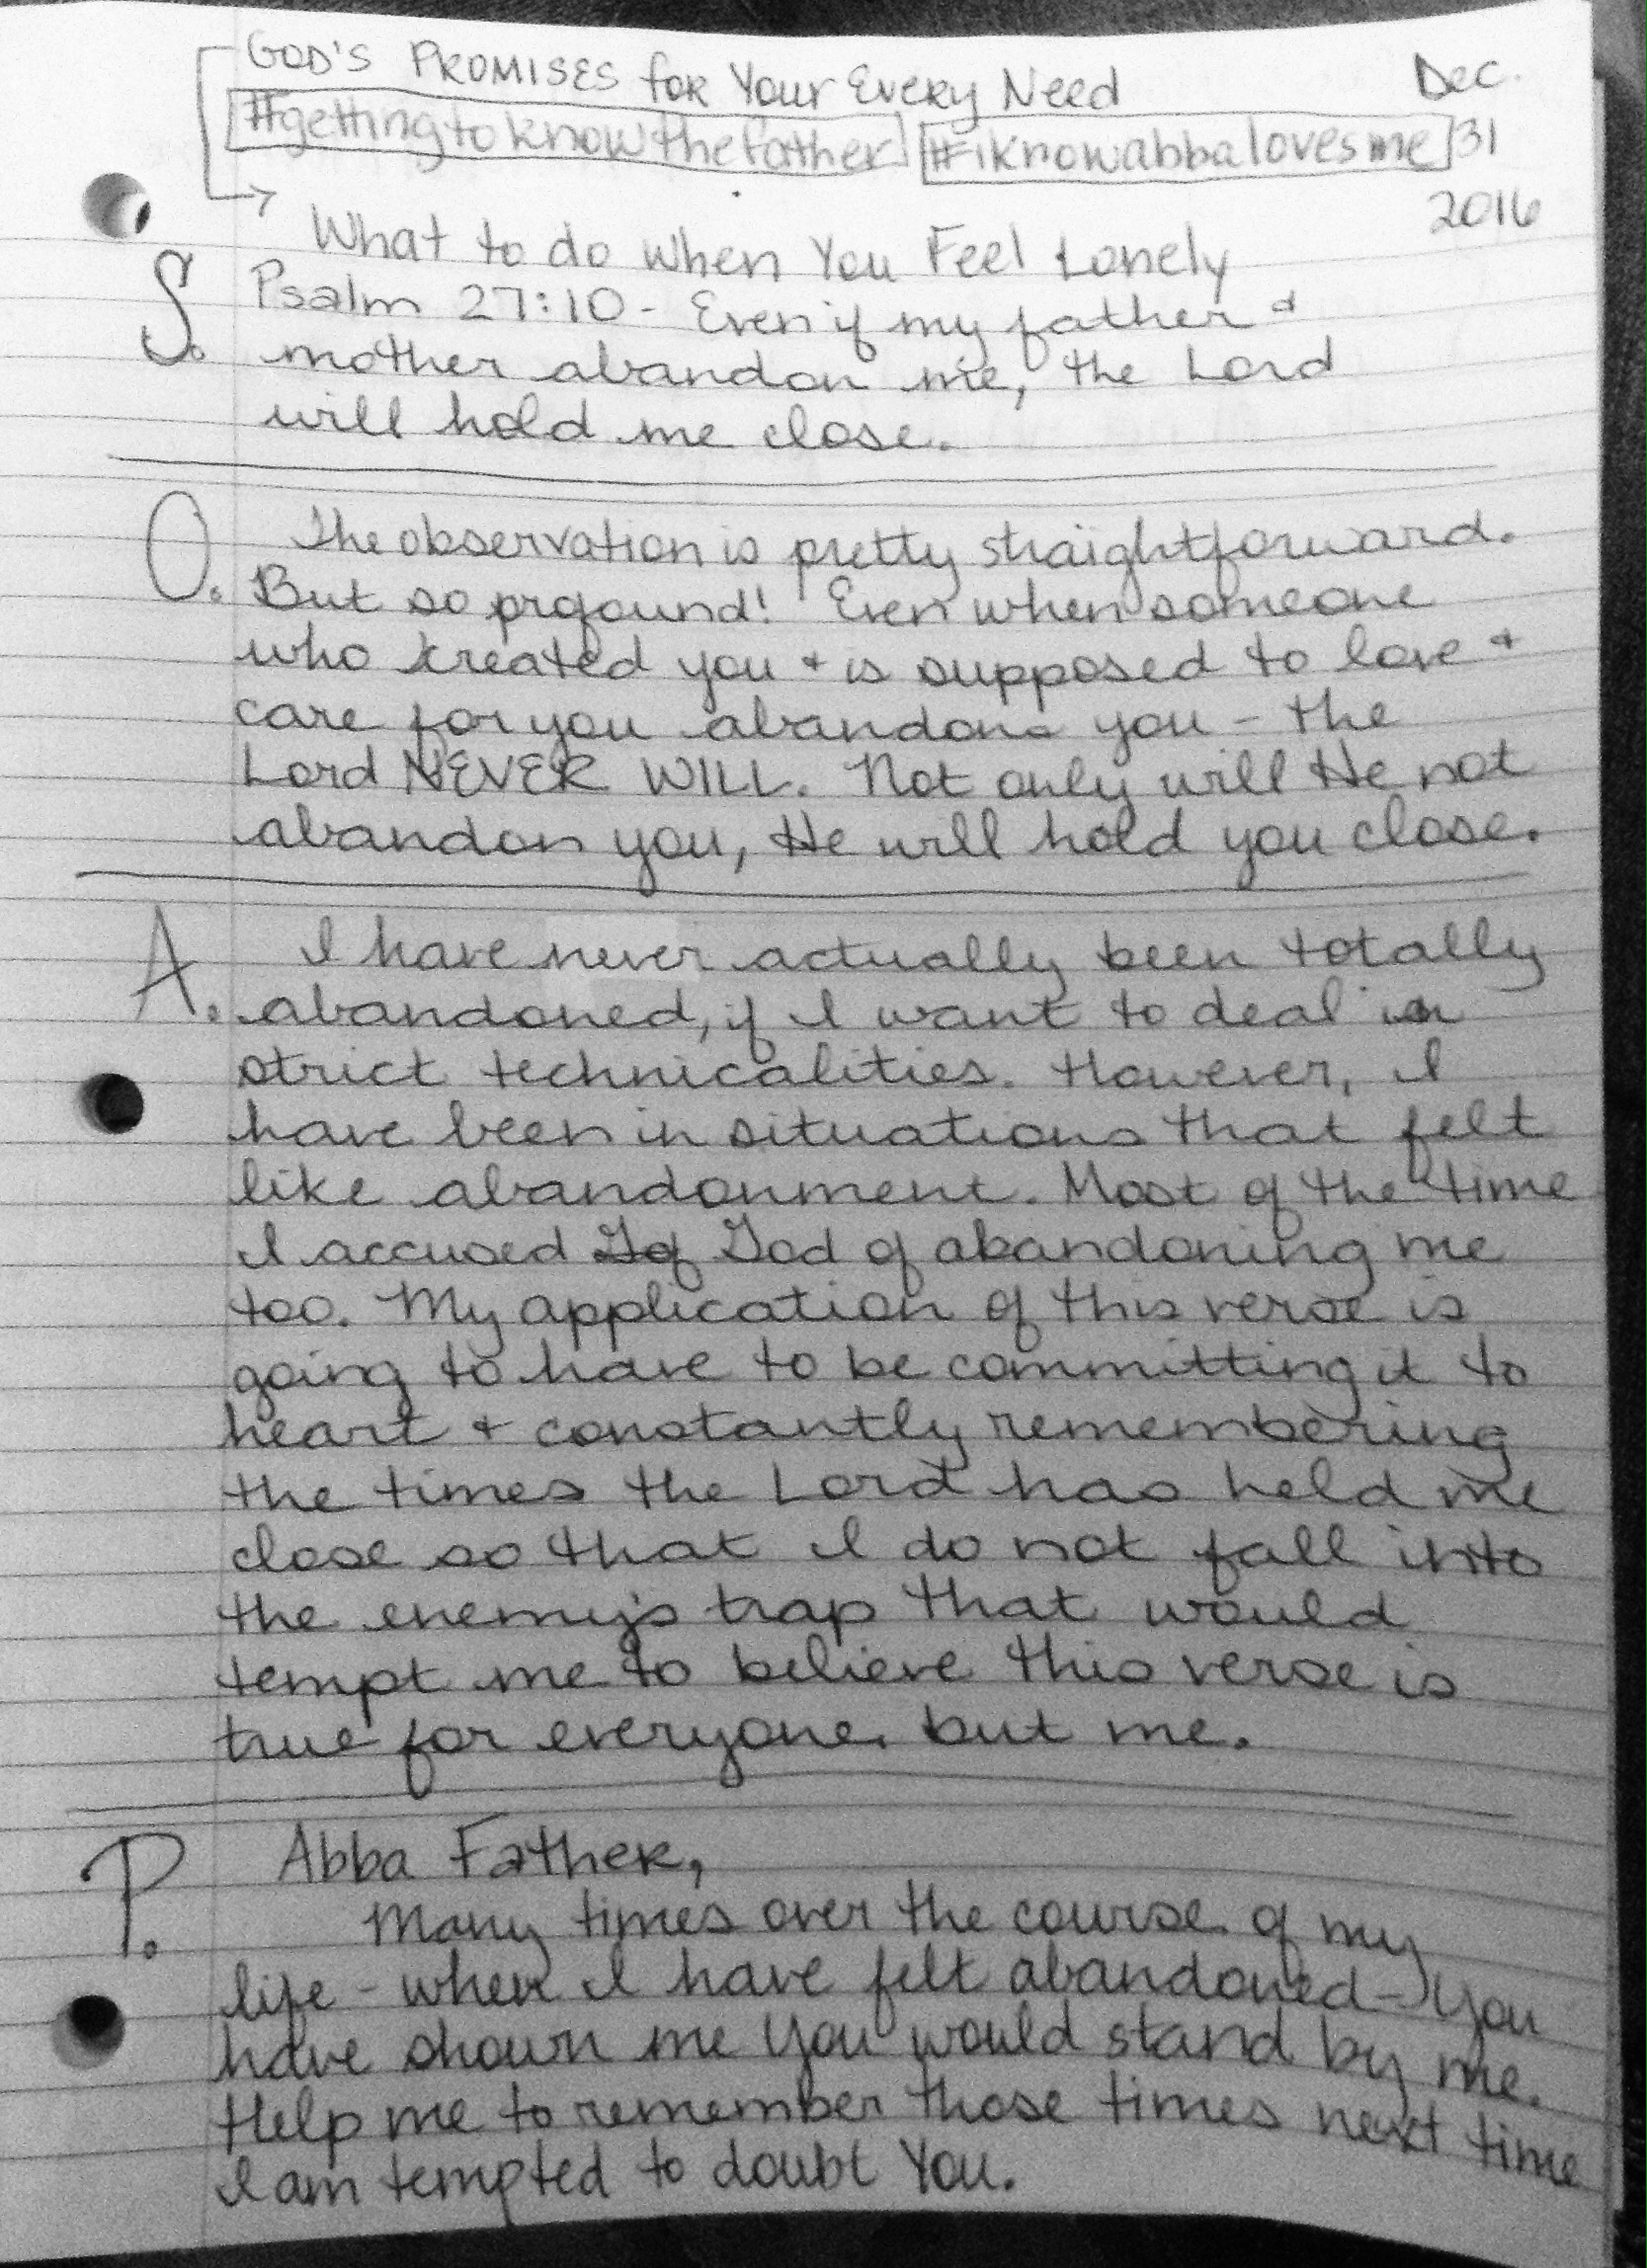 GOD'S PROMISES for Your Every Need
Dec.
#gettingtoknowthefather #iknowabbalovesme 31
2016
What to do When You Feel Lonely
S. Psalm 27:10 - Even if my father &
mother abandon me, the Lord
will hold me close.
O. The observation is pretty straightforward.
But so profound! Even when someone
who created you & is supposed to love &
care for you abandons you - the
Lord NEVER WILL. Not only will He not
abandon you, He will hold you close.
A. I have never actually been totally
abandoned, if I want to deal in
strict technicalities. However, I
have been in situations that felt
like abandonment. Most of the time
I accused Gof God of abandoning me
too. My application of this verse is
going to have to be committing it to
heart & constantly remembering
the times the Lord has held me
close so that I do not fall into
the enemy's trap that would
tempt me to believe this verse is
true for everyone, but me.
P. Abba Father,
Many times over the course of my
life - when I have felt abandoned - You
have shown me You would stand by me.
Help me to remember those times next time
I am tempted to doubt You.